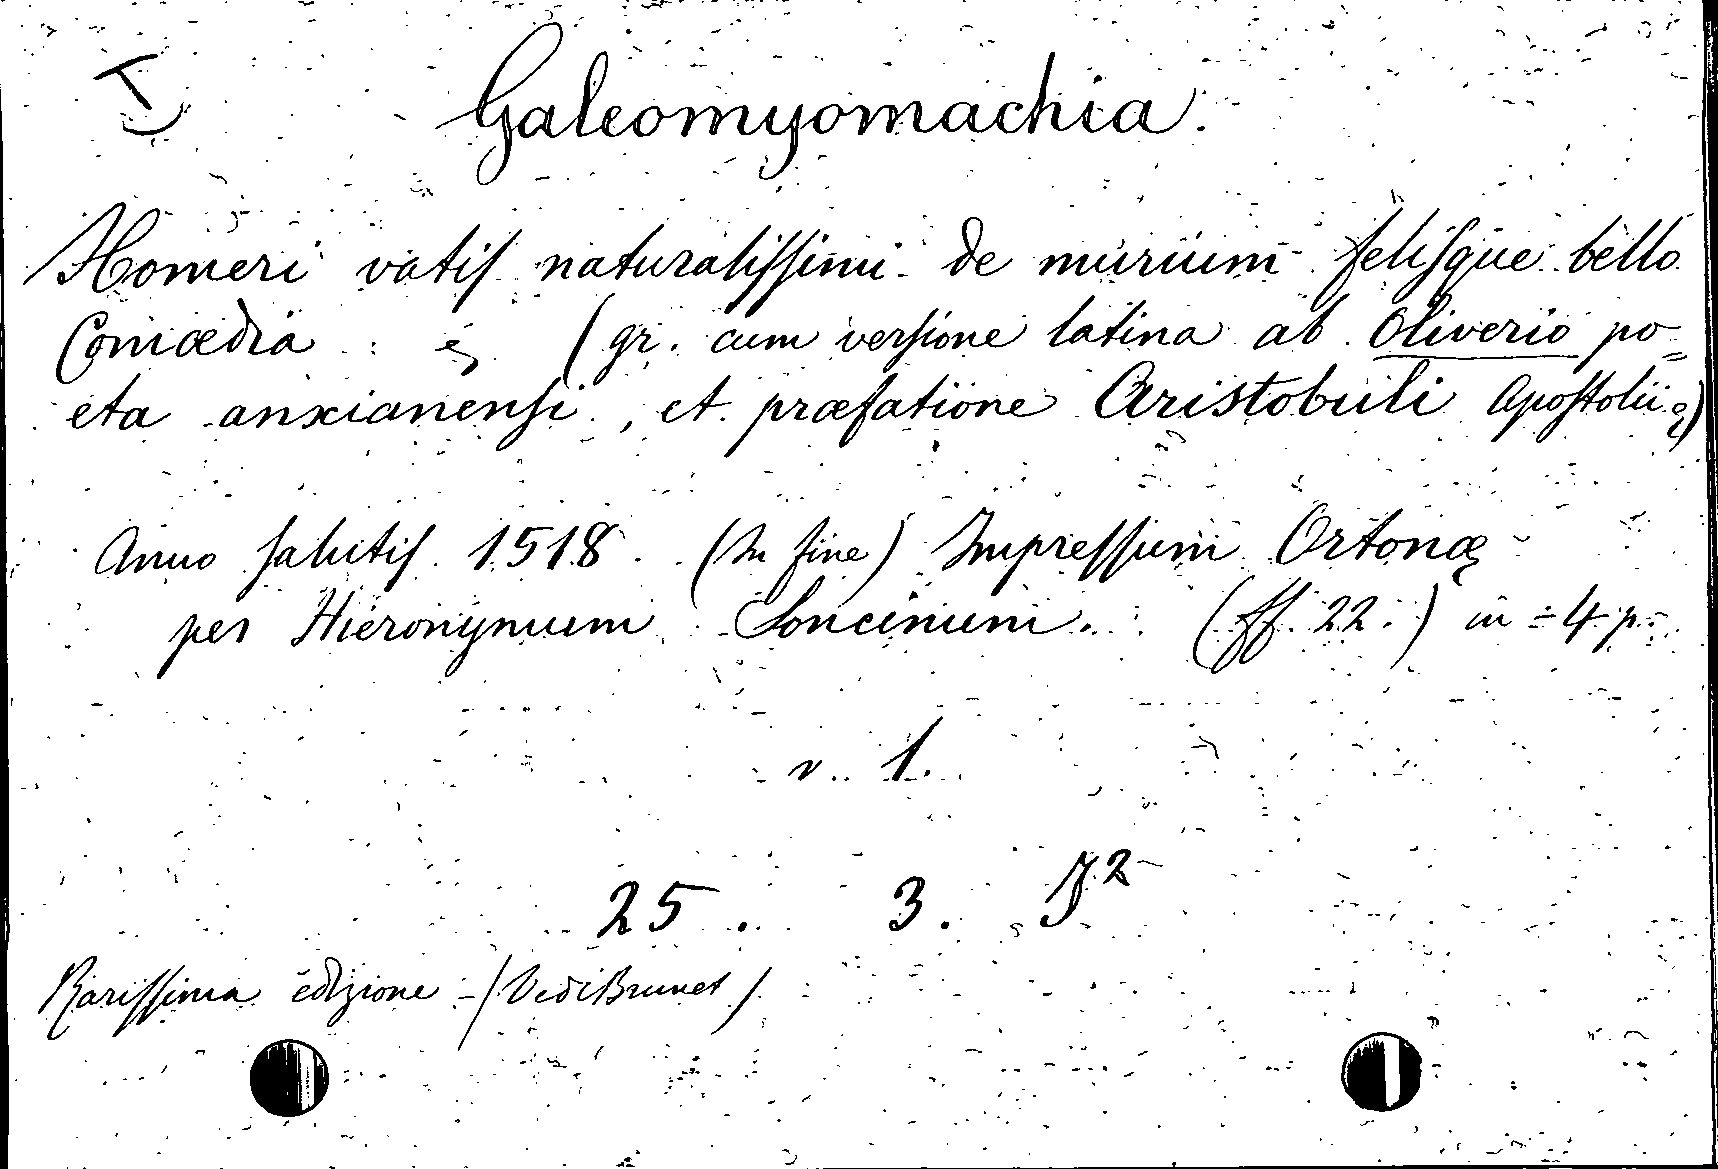 Galeomyomachia.
Homeri vatis naturalissimi de murium felisque bello
Comœdia : (gr. cum versione latina ab Oliverio po=
eta anxianensi, et præfatione Aristobuli Apostolii)
Anno salutis 1518. (In fine) Impressum Ortonæ
per Hieronymum Soncinum. (ff. 22.) in = 4 p.
v. 1.
25. 3. J²
Rarissima edizione - (Vedi Brunet)